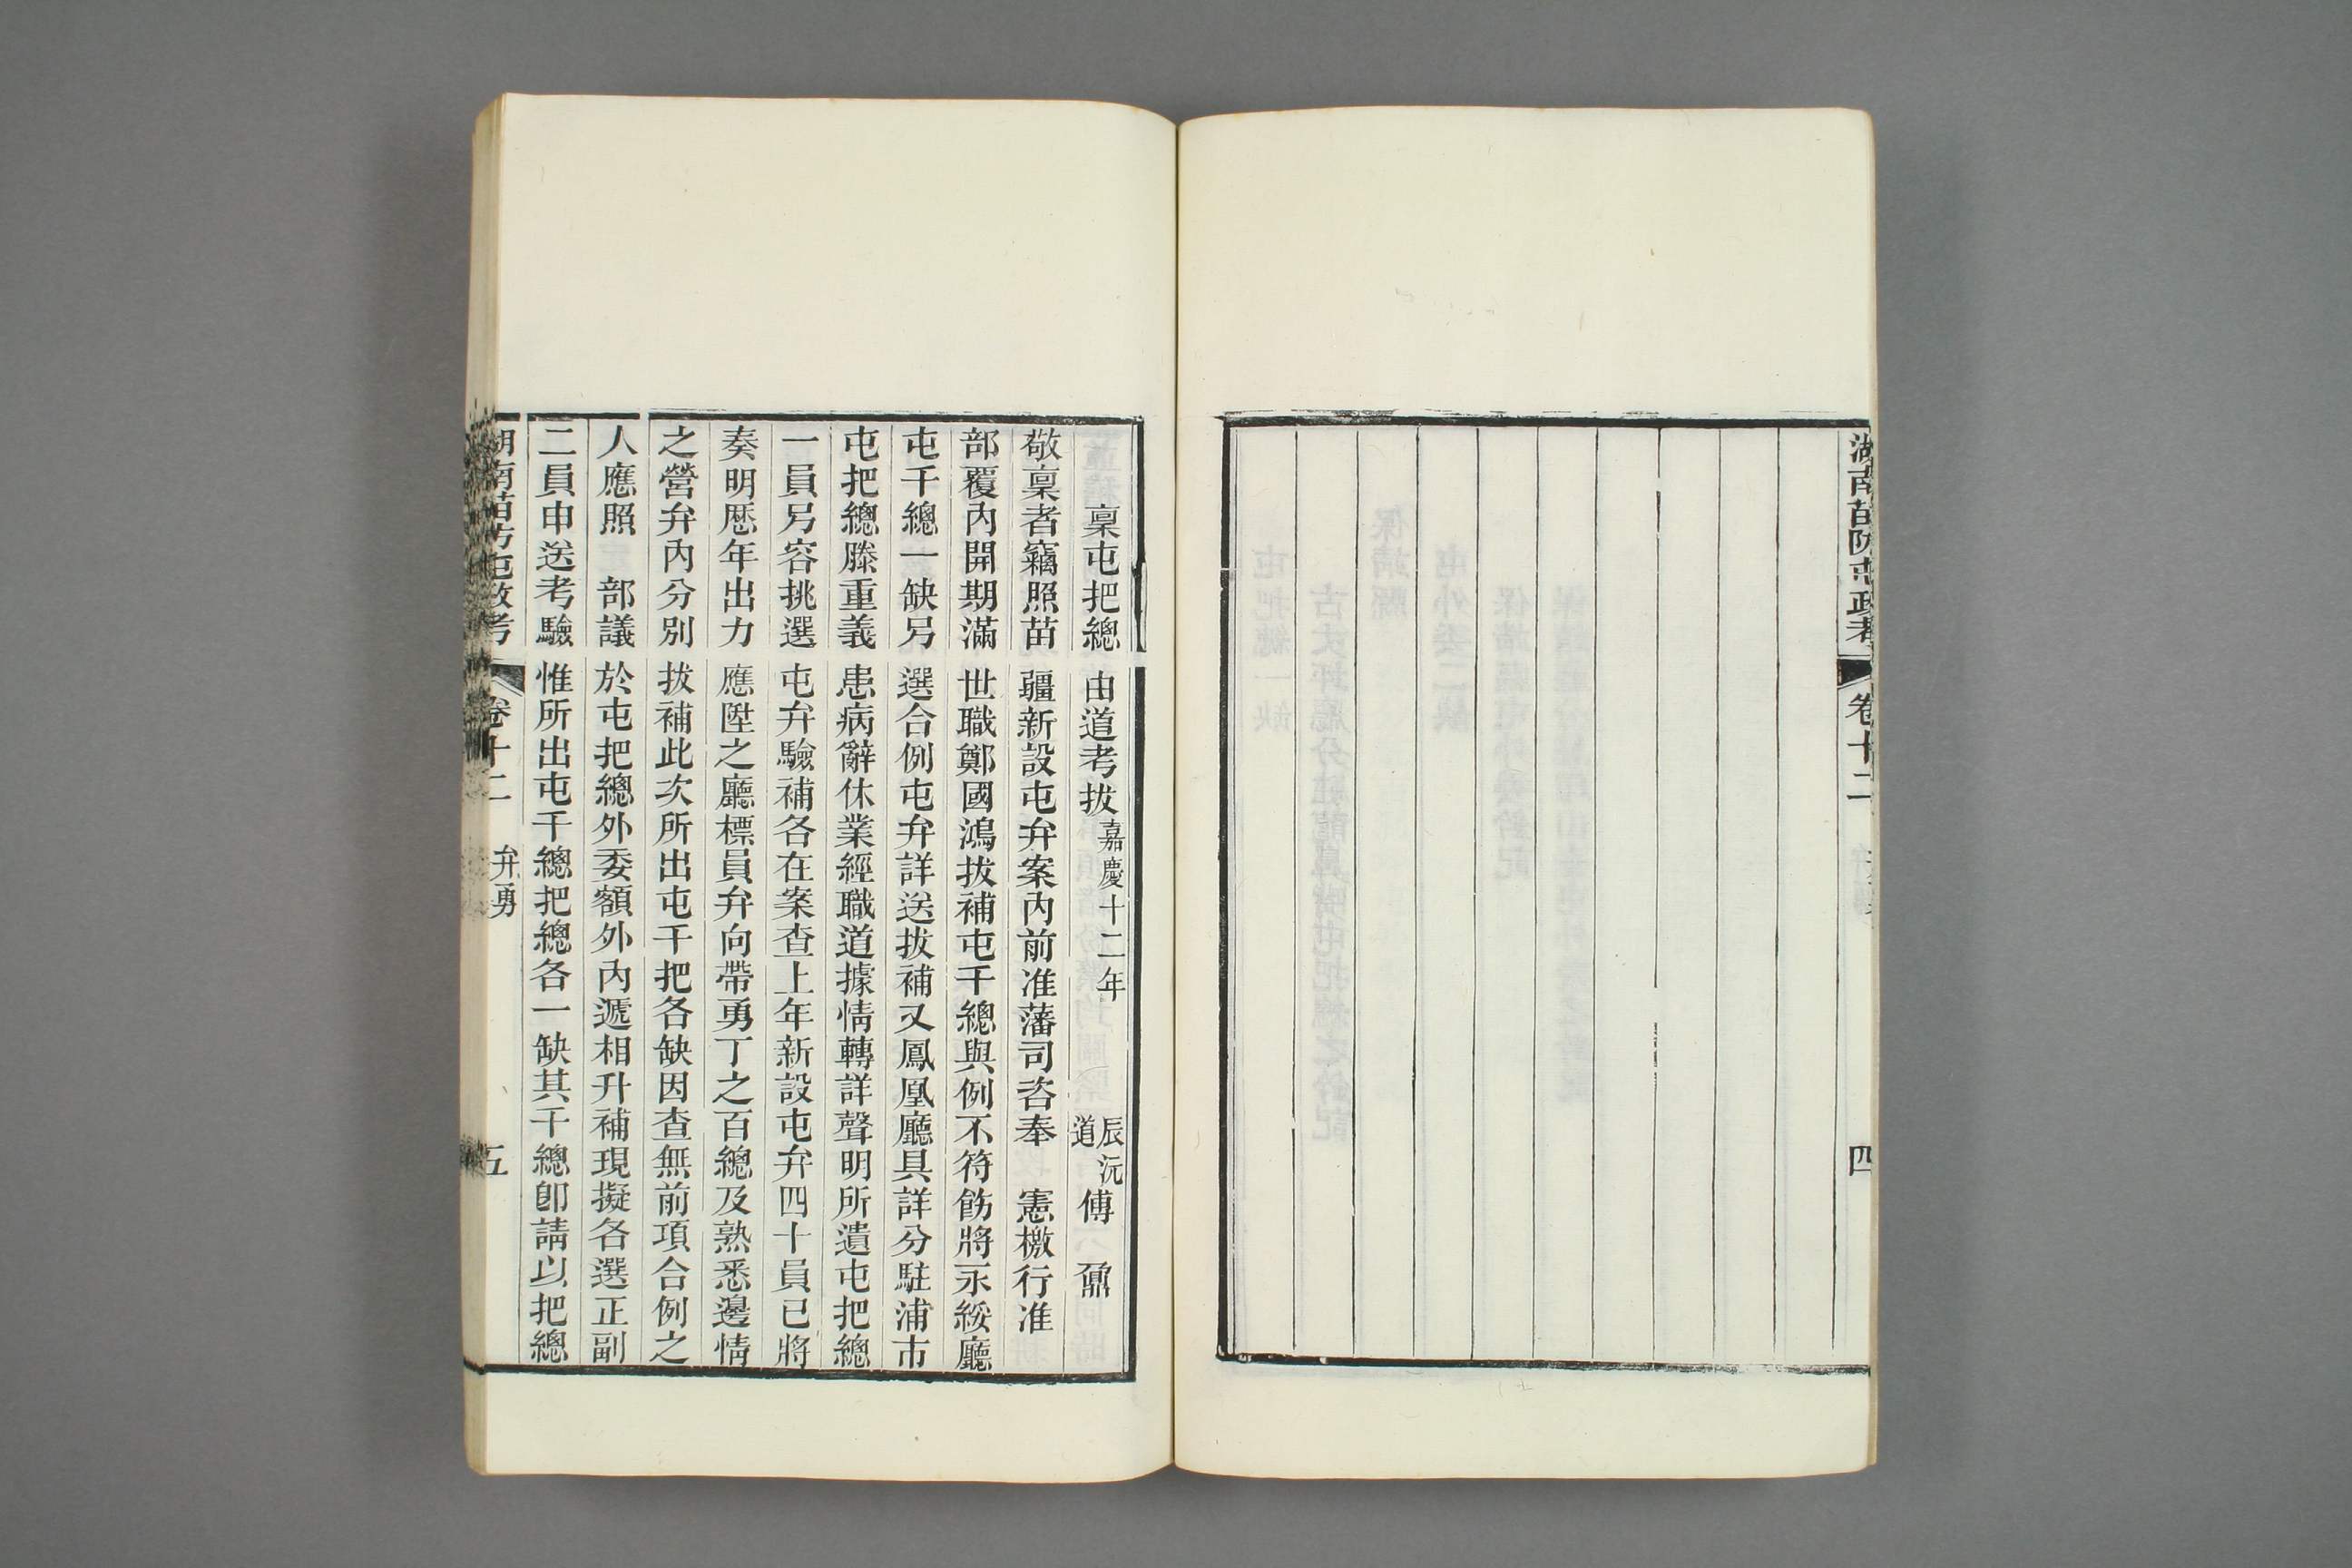 湖南苗防屯政考 卷十二 四
稟屯把總由道考拔 嘉慶十二年 辰沅道 傅鼐
敬稟者竊照苗疆新設屯弁案內前准藩司咨奉 憲檄行准
部覆內開期滿世職鄭國鴻拔補屯千總與例不符飭將永綏廳
屯千總一缺另選合例屯弁詳送拔補又鳳凰廳具詳分駐浦市
屯把總滕重義患病辭休業經職道據情轉詳聲明所遺屯把總
一員另容挑選屯弁驗補各在案查上年新設屯弁四十員已將
奏明歷年出力應陞之廳標員弁向帶勇丁之百總及熟悉邊情
之營弁內分別拔補此次所出屯千把各缺因查無前項合例之
人應照 部議於屯把總外委額外內遞相升補現擬各選正副
二員申送考驗惟所出屯千總把總各一缺其千總卽請以把總
湖南苗防屯政考 卷十二 弁勇 五